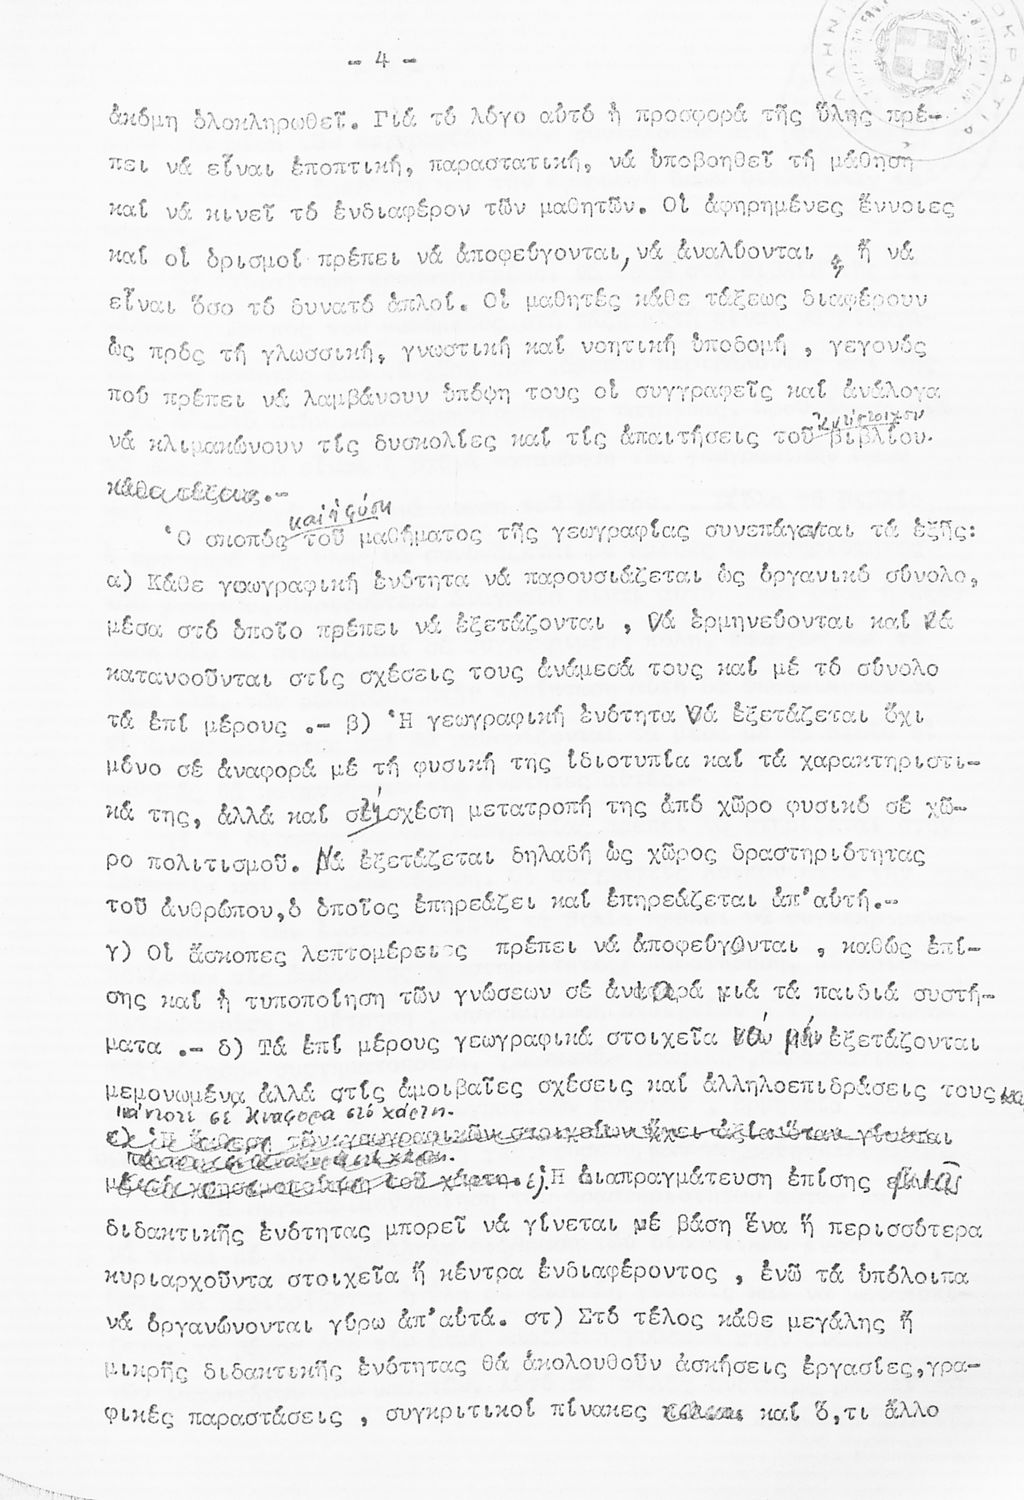 - 4 -
ἀκόμη ὁλοκληρωθεῖ. Γιά τό λόγο αὐτό ἡ προσφορά τῆς ὕλης πρέ-
πει νά εἶναι ἐποπτική, παραστατική, νά ὑποβοηθεῖ τή μάθηση
καί νά κινεῖ τό ἐνδιαφέρον τῶν μαθητῶν. Οἱ ἀφηρημένες ἔννοιες
καί οἱ ὁρισμοί πρέπει νά ἀποφεύγονται, νά ἀναλύονται , ἤ νά
εἶναι ὅσο τό δυνατό ἁπλοί. Οἱ μαθητές κάθε τάξεως διαφέρουν
ὡς πρός τή γλωσσική, γνωστική καί νοητική ὑποδομή , γεγονός
πού πρέπει νά λαμβάνουν ὑπόψη τους οἱ συγγραφεῖς καί ἀνάλογα
ἀντίστοιχου
νά κλιμακώνουν τίς δυσκολίες καί τίς ἀπαιτήσεις τοῦ βιβλίου.
κάθε τάξεως.-
καί ἡ φύση
Ὁ σκοπός τοῦ μαθήματος τῆς γεωγραφίας συνεπάγεται τά ἑξῆς:
α) Κάθε γεωγραφική ἑνότητα νά παρουσιάζεται ὡς ὀργανικό σύνολο,
μέσα στό ὁποῖο πρέπει νά ἐξετάζονται , νά ἑρμηνεύονται καί νά
κατανοοῦνται στίς σχέσεις τους ἀνάμεσά τους καί μέ τό σύνολο
τά ἐπί μέρους .- β) Ἡ γεωγραφική ἑνότητα νά ἐξετάζεται ὄχι
μόνο σέ ἀναφορά μέ τή φυσική της ἰδιοτυπία καί τά χαρακτηριστι-
κά της, ἀλλά καί σέ σχέση μετατροπή της ἀπό χῶρο φυσικό σέ χῶ-
ρο πολιτισμοῦ. Νά ἐξετάζεται δηλαδή ὡς χῶρος δραστηριότητας
τοῦ ἀνθρώπου,ὁ ὁποῖος ἐπηρεάζει καί ἐπηρεάζεται ἀπ'αὐτή.-
γ) Οἱ ἄσκοπες λεπτομέρειες πρέπει νά ἀποφεύγονται , καθώς ἐπί-
σης καί ἡ τυποποίηση τῶν γνώσεων σέ ἀνιαρά γιά τά παιδιά συστή-
ματα .- δ) Τά ἐπί μέρους γεωγραφικά στοιχεῖα νά μήν ἐξετάζονται
μεμονωμένα ἀλλά στίς ἀμοιβαῖες σχέσεις καί ἀλληλοεπιδράσεις τους καί
πάντοτε σέ ἀναφορά στό χάρτη.
ε) Ἡ ἔκθεση τῶν γεωγραφικῶν στοιχείων ἔχει ἀξία ὅταν γίνεται
χρησιμοποίηση τοῦ χάρτη. ε). Ἡ διαπραγμάτευση ἐπίσης μιᾶς
διδακτικῆς ἑνότητας μπορεῖ νά γίνεται μέ βάση ἕνα ἤ περισσότερα
κυριαρχοῦντα στοιχεῖα ἤ κέντρα ἐνδιαφέροντος , ἐνῶ τά ὑπόλοιπα
νά ὀργανώνονται γύρω ἀπ'αὐτά. στ) Στό τέλος κάθε μεγάλης ἤ
μικρῆς διδακτικῆς ἑνότητας θά ἀκολουθοῦν ἀσκήσεις ἐργασίες,γρα-
φικές παραστάσεις , συγκριτικοί πίνακες καί ὅ,τι ἄλλο